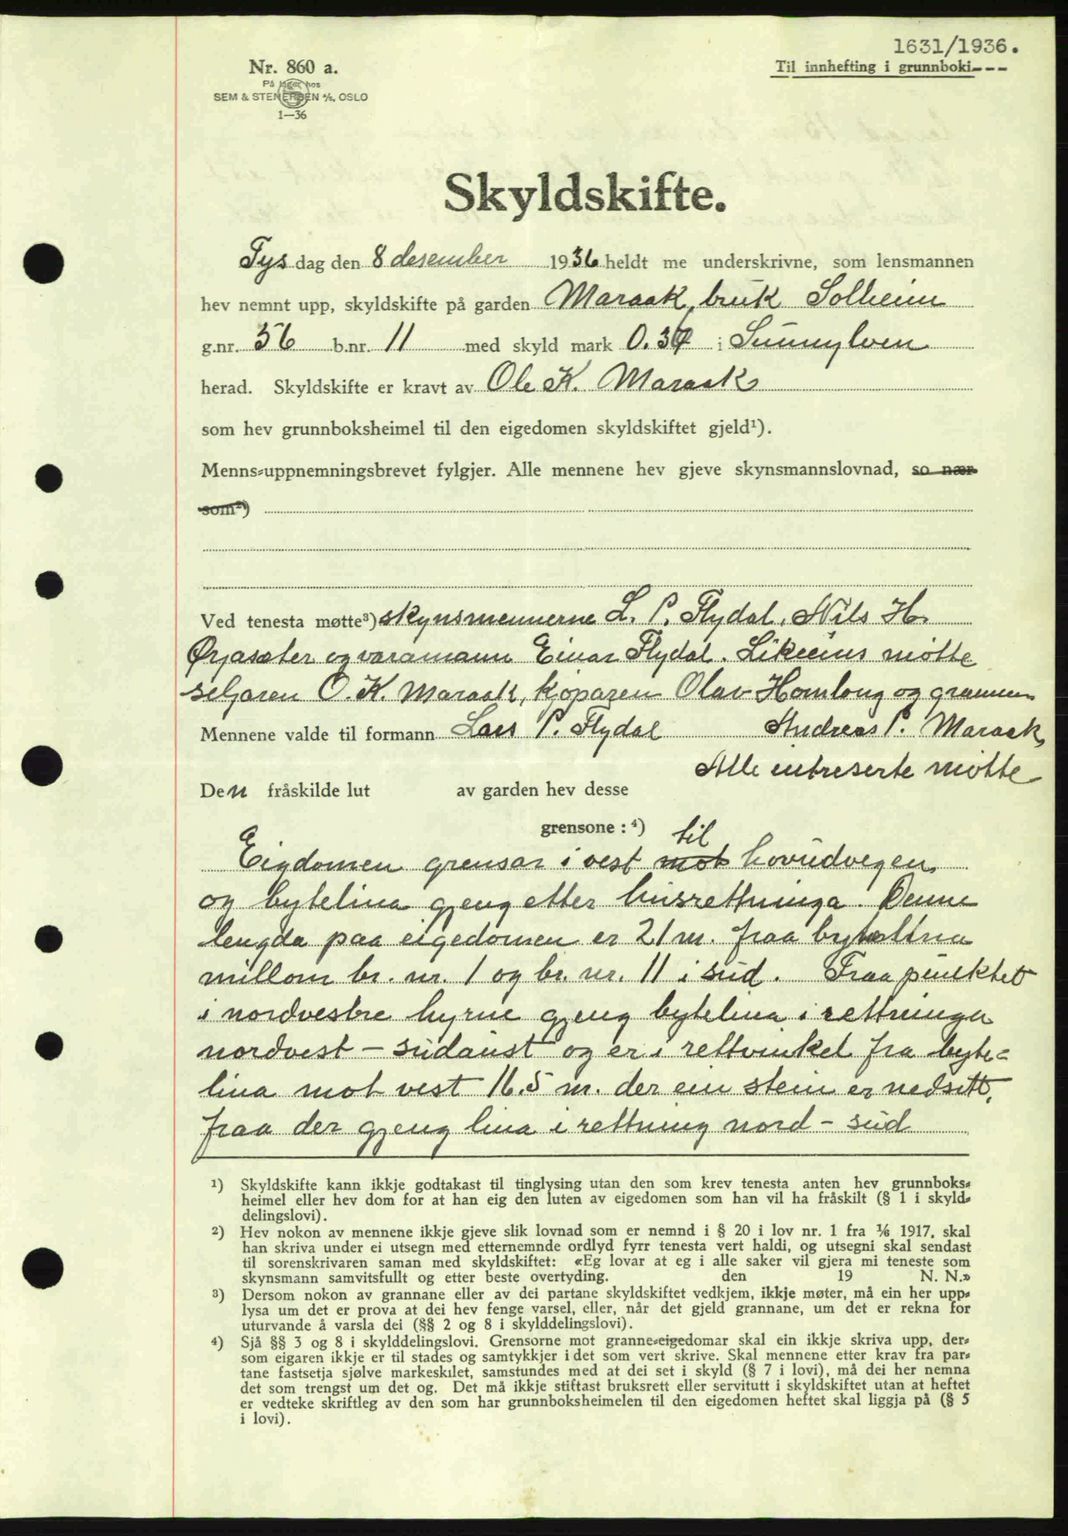 1631/1936.
Til innhefting i grunnboki---
Nr. 860 a.
På lager hos
SEM & STENERSEN A/S, OSLO
1—36
Skyldskifte.
Tys dag den 8 desember 1936 heldt me underskrivne, som lensmannen
hev nemnt upp, skyldskifte på garden Maraak, bruk Solheim
g.nr. 56 b.nr. 11 med skyld mark 0.34 i Sunnylven
herad. Skyldskifte er kravt av Ole K. Maraak
som hev grunnboksheimel til den eigedomen skyldskiftet gjeld¹).
Menns-uppnemningsbrevet fylgjer. Alle mennene hev gjeve skynsmannslovnad, so nær
som²)
Ved tenesta møtte³) skynsmennerne L. P. Flydal, Nils H.
Ørjasæter og varamann Einar Flydal. Likeeins møtte
seljaren O. K. Maraak, kjøparen Olav Homlong og grannen
Mennene valde til formann Lars P. Flydal Andreas P. Maraak,
Alle intreserte møtte
Den fråskilde lut av garden hev desse
grensone : ⁴)
til
Eigdomen grensar i vest mot hovudvegen,
og bytelina gjeng etter husrettninga. Denne
lengda paa eigedomen er 21 m. fraa bytelina
millom br. nr. 1 og br. nr. 11 i sud. Fraa punktet
i nordvestre hyrne gjeng bytelina i rettninga
nordvest - sudaust og er i rettvinkel fra byte=
lina mot vest 16.5 m. der ein stein er nedsett,
fraa der gjeng lina i rettning nord - sud
¹) Skyldskifte kann ikkje godtakast til tinglysing utan den som krev tenesta anten hev grunnboks-
heimel eller hev dom for at han eig den luten av eigedomen som han vil ha fråskilt (§ 1 i skyld-
delingslovi).
²) Hev nokon av mennene ikkje gjeve slik lovnad som er nemnd i § 20 i lov nr. 1 fra 1/6 1917, skal
han skriva under ei utsegn med etternemnde ordlyd fyrr tenesta vert haldi, og utsegni skal sendast
til sorenskrivaren saman med skyldskiftet: «Eg lovar at eg i alle saker vil gjera mi teneste som
skynsmann samvitsfullt og etter beste overtyding. den 19 N. N.»
³) Dersom nokon av grannane eller av dei partane skyldskiftet vedkjem, ikkje møter, må ein her upp-
lysa um det er prova at dei hev fenge varsel, eller, når det gjeld grannane, um det er rekna for
uturvande å varsla dei (§§ 2 og 8 i skylddelingslovi).
⁴) Sjå §§ 3 og 8 i skylddelingslovi. Grensorne mot granne-eigedomar skal ein ikkje skriva upp, der-
som eigaren ikkje er til stades og samtykkjer i det som vert skrive. Skal mennene etter krav fra par-
tane fastsetja sjølve markeskilet, samstundes med at dei set i skyld (§ 7 i lovi), må dei her nemna
det som trengst um det og. Det må ikkje stiftast bruksrett eller servitutt i skyldskiftet utan at heftet
er vedteke skriftleg av den som har grunnboksheimelen til den eigedomen heftet skal liggja på (§ 5
i lovi).